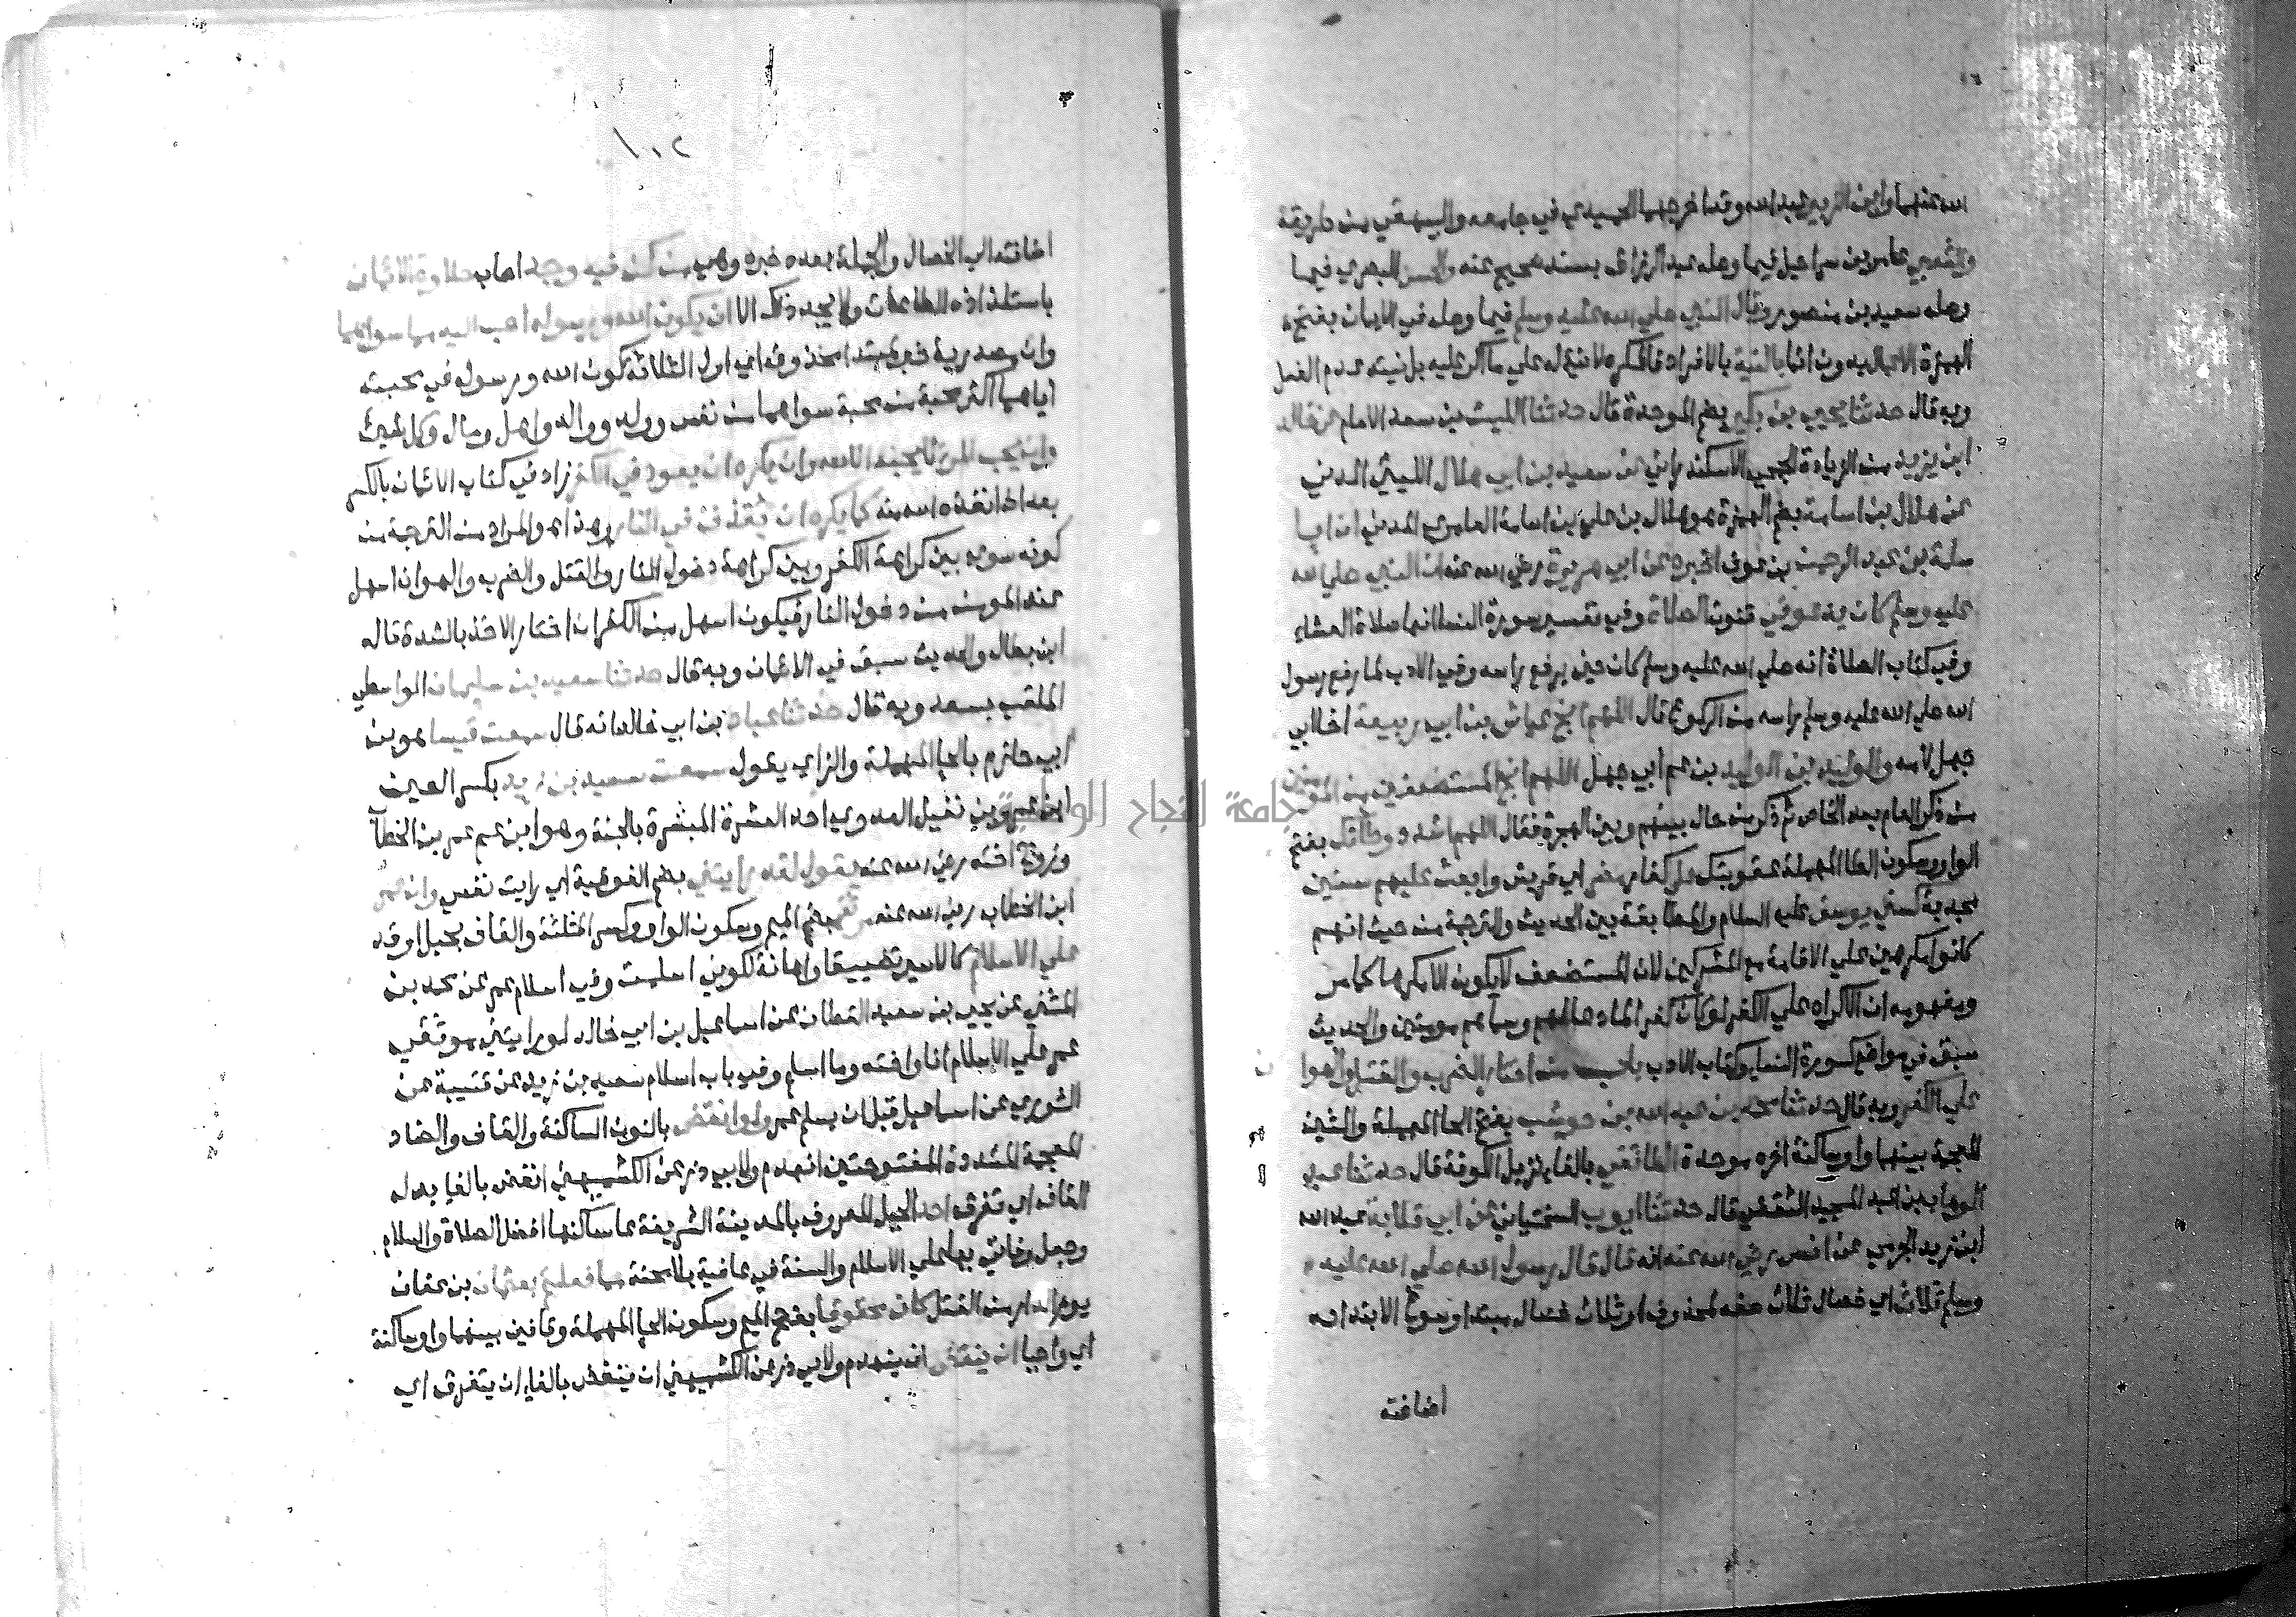 الله عنهما وابن الزبير عبد الله وقد اخرجهما الحميدي في جامعه والبيهقي من طريقه
والشعبي عامر بن سراعيل فيما وصله عبد الرزاق بسند صحيح عنه والحسن البصري فيما
وصله سعيد بن منصور وقال النبي صلي الله عليه وسلم فيما وصله في الايمان بفتح
الهمزة الاعمال بدون انما بالنية بالافراد فالمكره لا نية له علي ما اكره عليه بل نيته عدم الفعل
وبه قال حدثنا يحيي بن بكير بضم الموحدة قال حدثنا الليث بن سعد الامام عن خالد
ابن يزيد من الزيادة الجمحي الاسكندراني عن سعيد بن ابي هلال الليثي المدني
عن هلال بن اسامة بضم الهمزة هو هلال بن علي بن اسامة العامري المدني ان ابا
سلمة بن عبد الرحمن بن عوف اخبره عن ابي هريرة رضي الله عنه ان النبي صلي الله
عليه وسلم كان يدعو في قنوت الصلاة وفي تفسير سورة النسا انها صلاة العشاء
وفي كتاب الصلاة انه صلي الله عليه وسلم كان حين يرفع راسه وفي الادب لما رفع رسول
الله صلي الله عليه وسلم راسه من الركوع قال اللهم انج عياش بن ابي ربيعة اخا ابي
جهل لامه والوليد بن الوليد بن عم ابي جهل اللهم انج المستضعفين من المومنين
من ذكر العام بعد الخاص ثم ذكر من حال بينهم وبين الهجرة فقال اللهم اشدد وطاتك بفتح
الواو وسكون الطا المهملة عقوبتك علي كفار مضر اي قريش وابعث عليهم سنين
مجدبة كسني يوسف عليه السلام والمطابقة بين الحديث والترجمة من حيث انهم
كانوا مكرهين علي الاقامة مع المشركين لان المستضعف لا يكون الا مكرها كما مر
ومفهومه ان الاكراه علي الكفر لو كان كفرا لما دعا لهم وسماهم مومنين والحديث
سبق في مواضع كسورة النساء وكتاب الادب باب من اختار الضرب والقتل والهوان
علي الكفر وبه قال حدثنا محمد بن عبد الله بن حوشب بفتح الحا المهملة والشين
المعجمة بينهما واو ساكنة اخره موحدة الطائفي بالفاء نزيل الكوفة قال حدثنا عبد
الوهاب بن عبد المجيد الثقفي قال حدثنا ايوب السختياني عن ابي قلابة عبد الله
ابن زيد الجرمي عن انس رضي الله عنه انه قال قال رسول الله صلي الله عليه
وسلم ثلاث اي خصال ثلاث صفة لمحذوف او ثلاث خصال مبتدا وسوغ الابتدا به
اضافته
١٠٢
اضافته الي الخصال والجملة بعده خبره وهي من كن فيه وجد اصاب حلاوة الايمان
باستلذاذه الطاعات ولا يجد ذلك الا ان يكون الله ورسوله احب اليه مما سواهما
وان مصدرية خبر لمبتدا محذوف اي اول الثلاثة كون الله ورسوله في محبته
اياهما اكثر محبة من محبة سواهما من نفس وولد ووالد واهل ومال وكل شيئ
وان يحب المرء لا يحبه الا لله وان يكره ان يعود في الكفر زاد في كتاب الايمان بالكسر
بعد اذ انقذه الله منه كما يكره ان يقذف في النار وهذا هو المراد من الترجمة من
كونه سوي بين كراهة الكفر وبين كراهة دخول النار والقتل والضرب والهوان اسهل
عند المومن من دخول النار فيكون اسهل من الكفر ان اختار الاخذ بالشدة قاله
ابن بطال والحديث سبق في الايمان وبه قال حدثنا سعيد بن سليمان الواسطي
الملقب بسعدويه قال حدثنا عباد بن ابي خالد انه قال سمعت قيسا هو بن
ابي حازم بالحا المهملة والزاي يقول سمعت سعيد بن زيد بكسر العين
ابن عمرو بن نفيل العدوي احد العشرة المبشرة بالجنة وهو ابن عم عمر بن الخطاب
وزوج اخته رضي الله عنه يقول لقد رايتني بضم الفوقية اي رايت نفسي وان عمر
ابن الخطاب رضي الله عنه موثقي بضم الميم وسكون الواو وكسر المثلثة والقاف بحبل او قد
علي الاسلام كالاسير تضييقا واهانة لكوني اسلمت وفي اسلام عمر عن محمد بن
المثني عن يحيي بن سعيد القطان عن اسماعيل بن ابي خالد لو رايتني موثقي
عمر علي الاسلام انا واخته وما اسلم وفي باب اسلام سعيد بن زيد عن قتيبة عن
الثوري عن اسماعيل قبل ان يسلم عمر ولو انقض بالنون الساكنة والقاف والضاد
المعجمة المشددة المفتوحتين انهدم ولابي ذر عن الكشميهني انفض بالفا بدل
القاف اي تفرق احد الجبل المعروف بالمدينة الشريفة علي ساكنها افضل الصلاة والسلام
وجعل وفاتي بها علي الاسلام والسنة في عافية بلا محنة مما فعلتم بعثمان بن عفان
يوم الدار من القتل كان محقوقا بفتح الميم وسكون الحا المهملة وقافين بينهما واو ساكنة
اي واجبا ان ينقض ان ينهدم ولابي ذر عن الكشميهني ان ينفض بالفاء ان يتفرق اي
جامعة النجاح الوطنية